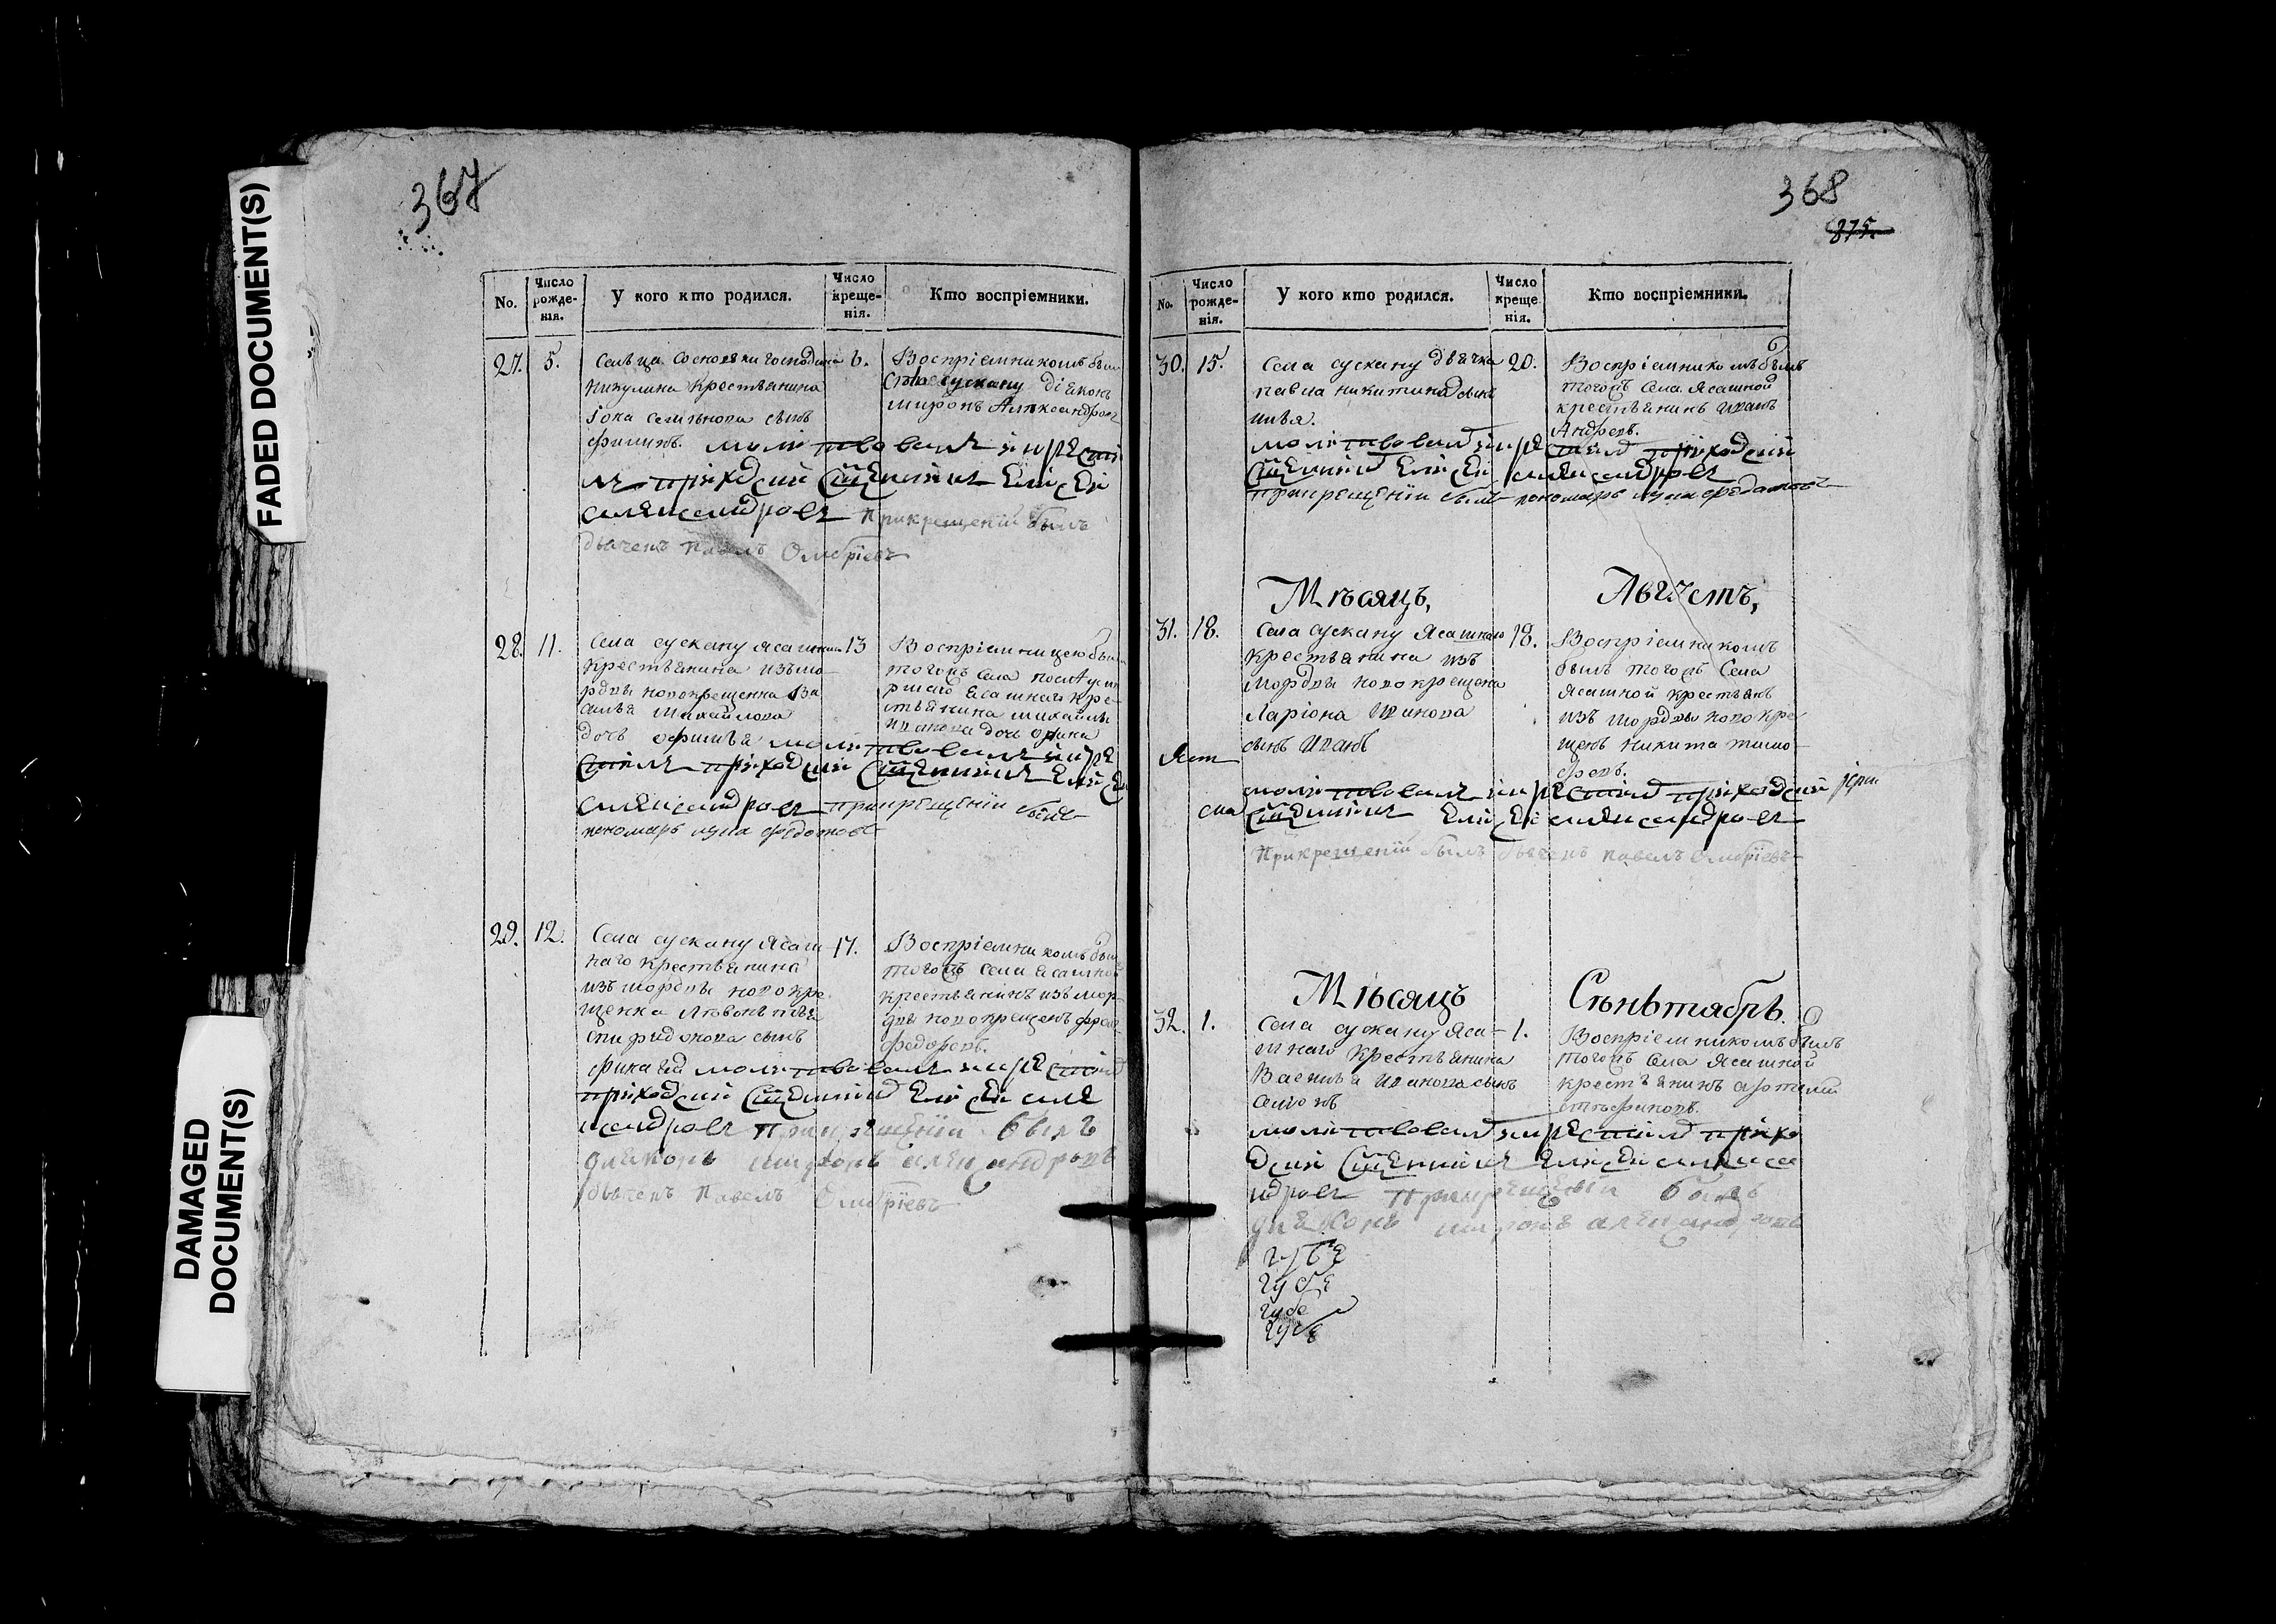 FADED DOCUMENT(S)
DAMAGED
DOCUMENT(S)
367
No.
Число
рожде-
нія.
У кого кто родился.
Число
креще-
нія.
Кто воспріемники.
27.
5.
Сельца Сосновки господина
Никулина крестьянина
сынъ
Филипъ. молитвовалъ и кре
стилъ приходскій Священникъ Елисей
Александровъ При крещеніи былъ
дьячекъ Павелъ
6.
Воспріемникомъ былъ
Села сускану діаконъ
миронъ Александровъ
28.
11.
Села сускану ясашнаго
крестьянина изъ мо-
рдвы новокрещена Ва
силья Михайлова
дочь офимья молитвовалъ и кре
стилъ приходскій Священникъ Елисей
Александровъ при крещеніи былъ
пономарь лука федотовъ
13
Воспріемницею была
тогожъ села после умер
ршаго ясашнаго кре-
стьянина михайлы
иванова дочь орина
29.
12.
Села сускану ясаш
наго крестьянина
изъ мордвы новокре
щенна Леонтья
спиридонова сынъ
молитвовалъ и крестилъ
приходскій Священникъ Елисей Але
ксандровъ при крещеніи былъ
диаконъ миронъ александровъ
дьячекъ Павелъ
17.
Воспріемникомъ былъ
тогожъ села ясашной
крестьянинъ изъ мор-
двы новокрещенъ
федоровъ.
368
875.
No.
Число
рожде-
нія.
У кого кто родился.
Число
креще
нія.
Кто воспріемники.
30.
15.
Села сускану дьячка
павла никитина сынъ
илья.
молитвовалъ и крестилъ приходскій
Священникъ Елисей Александровъ
при крещеніи былъ пономарь лука федотовъ
20.
Воспріемникомъ былъ
тогожъ села ясашной
крестьянинъ иванъ
Андреевъ.
Мѣсяцъ,
Августъ,
31.
18.
Села сускану ясашнаго
крестьянина изъ
мордвы новокрещена
Ларіона иванова
сынъ иванъ
молитвовалъ и крестилъ приходскій
Священникъ Елисей Александровъ
При крещеніи былъ дьячекъ павелъ
18.
Воспріемникомъ
былъ тогожъ Села
ясашной крестьянъ
изъ мордвы новокре
щенъ никита тимо-
феевъ.
Мѣсяцъ
Сѣньтабрь.
32.
1.
Села сускану яса-
шнаго крестьянина
Василья иванова сынъ
семіонъ
молитвовалъ и крестилъ прихо
дскій Священникъ Елисей Алекса
ндровъ при крещеніи былъ
диаконъ миронъ александровъ
1.
Воспріемникомъ былъ
тогожъ села ясашной
крестьянинъ артемій
губе
губе
губе
губе